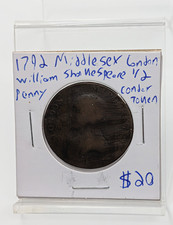 1792 Middlesex London
William Shakespeare 1/2
Penny Condor
Token
$20